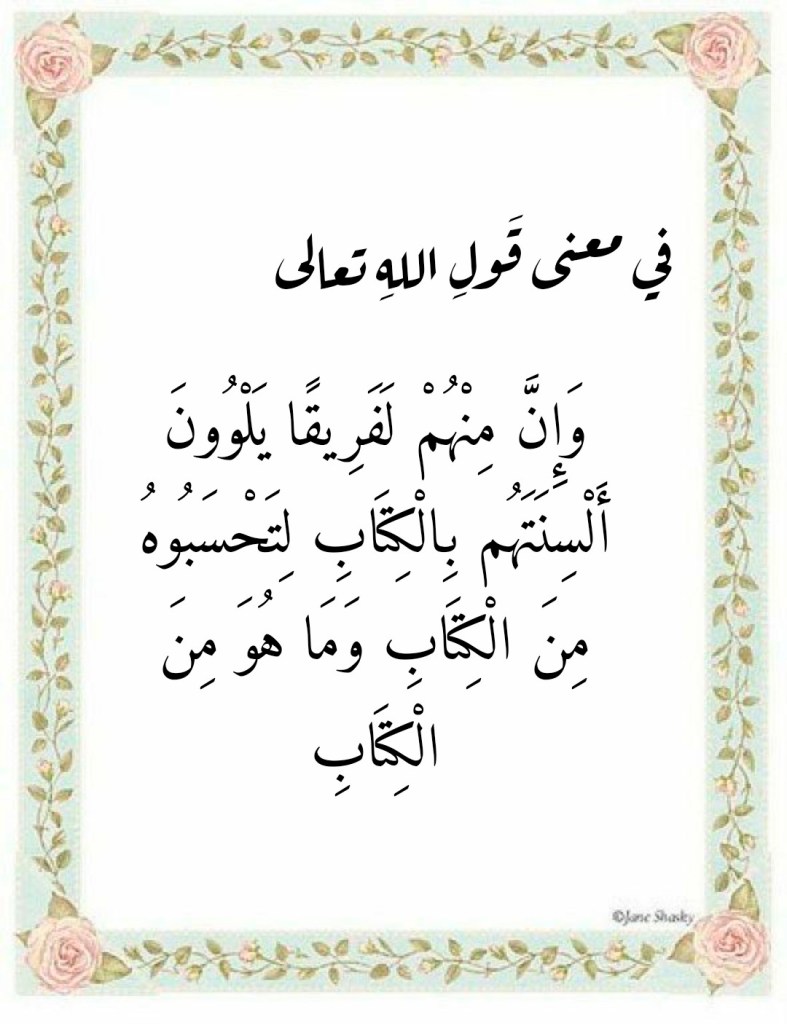 في معنى قَولِ اللهِ تعالى
وَإِنَّ مِنْهُمْ لَفَرِيقًا يَلْوُونَ
أَلْسِنَتَهُم بِالْكِتَابِ لِتَحْسَبُوهُ
مِنَ الْكِتَابِ وَمَا هُوَ مِنَ
الْكِتَابِ
©Jane Shasky